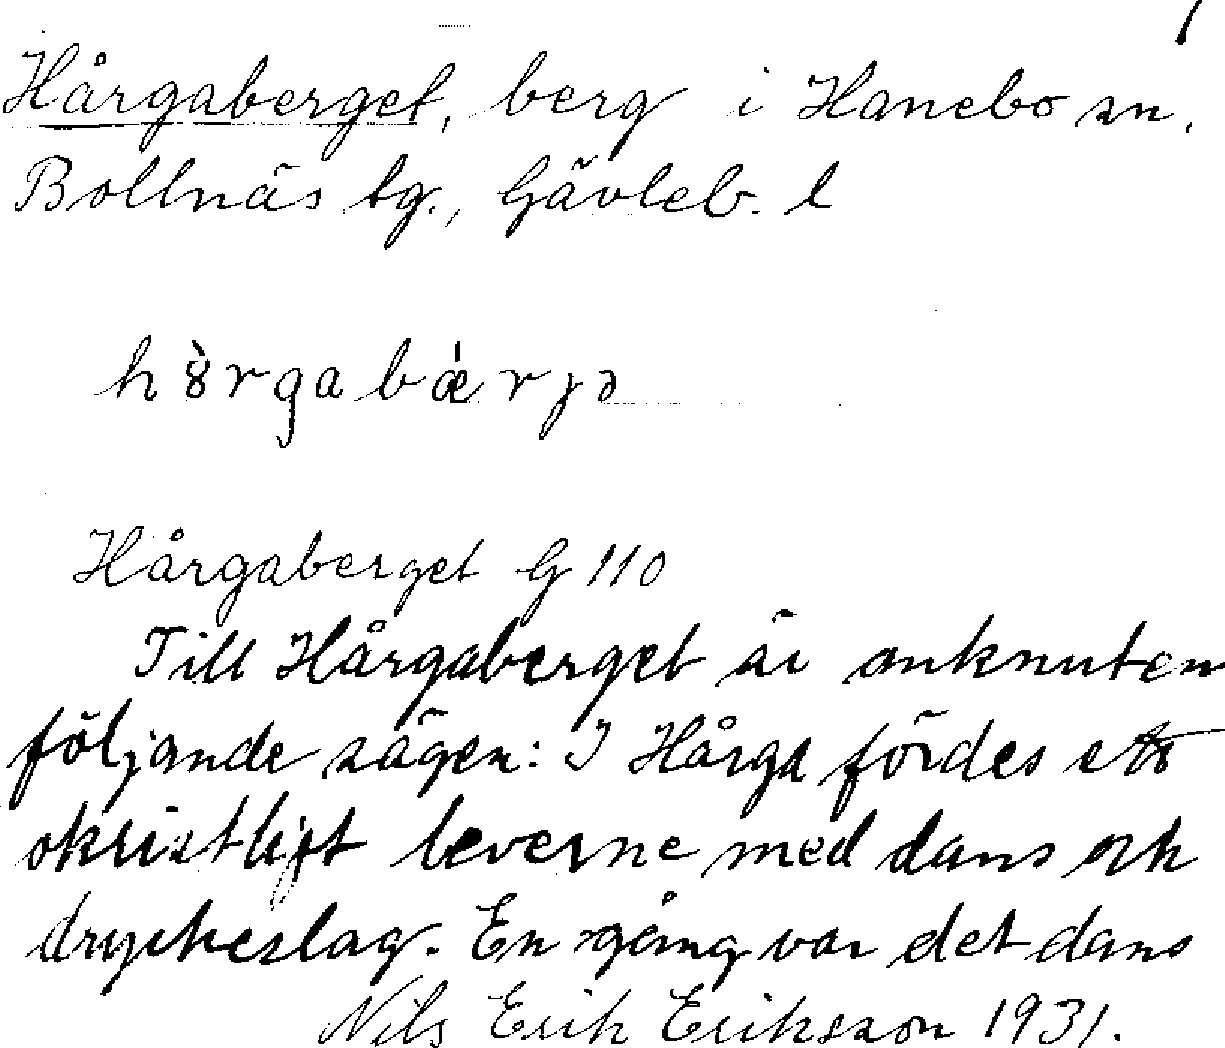 1
Hårgaberget, berg i Hanebo sn,
Bollnäs tg., Gävleb. l
hȣ̀rgabǽrjə
Hårgaberget G 110
Till Hårgaberget är anknuten
följande sägen: I Hårga fördes ett
okristligt leverne med dans och
dryckeslag. En gång var det dans
Nils Erik Eriksson 1931.